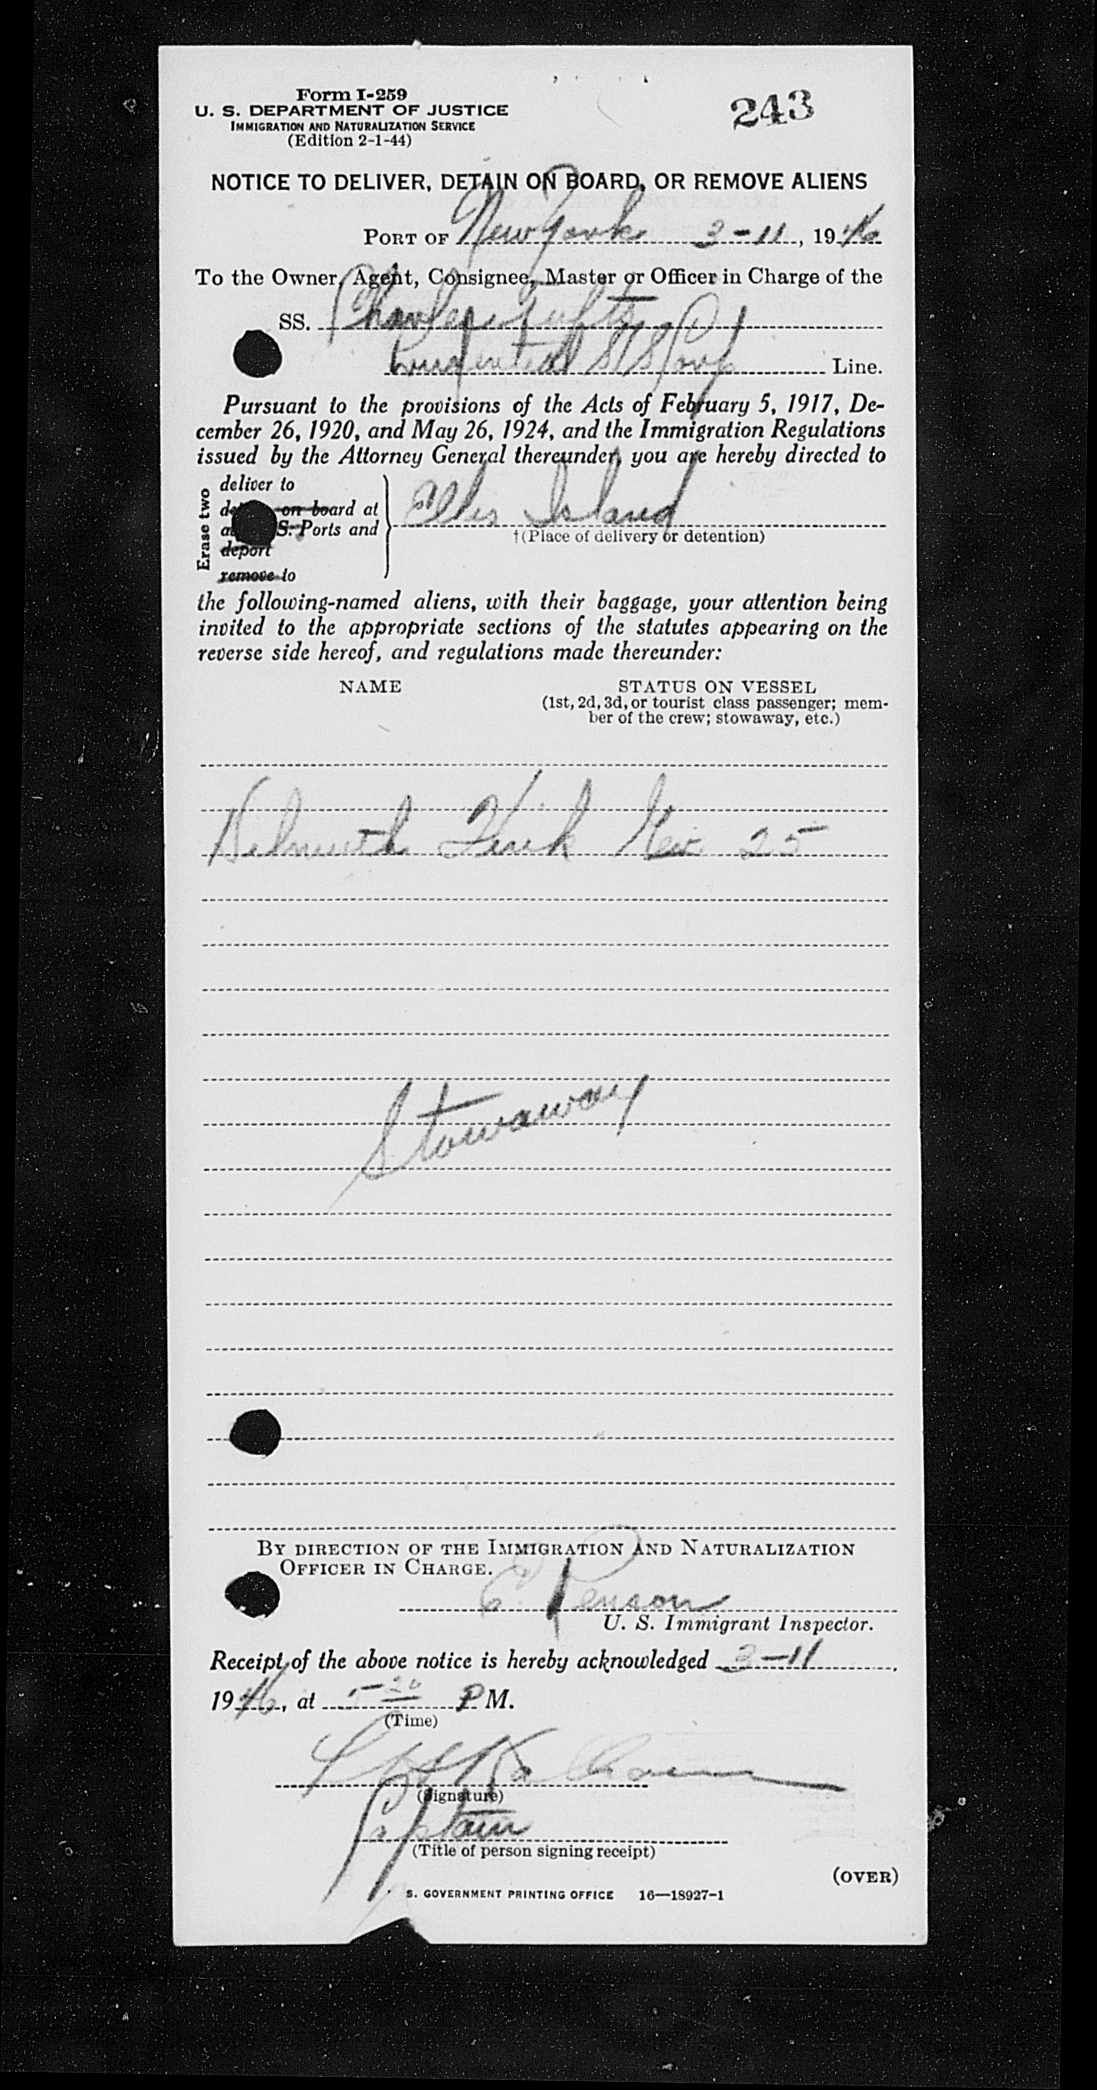 Form I-259
U. S. DEPARTMENT OF JUSTICE
IMMIGRATION AND NATURALIZATION SERVICE
(Edition 2-1-44)
243
NOTICE TO DELIVER, DETAIN ON BOARD, OR REMOVE ALIENS
PORT OF New York 3-11, 1946
To the Owner, Agent, Consignee, Master or Officer in Charge of the
SS. Charles
Prudential SS Corp Line.
Pursuant to the provisions of the Acts of February 5, 1917, De-
cember 26, 1920, and May 26, 1924, and the Immigration Regulations
issued by the Attorney General thereunder, you are hereby directed to
Erase two
deliver to
on board at
S. Ports and
deport
remove to
Ellis Island
†(Place of delivery or detention)
the following-named aliens, with their baggage, your attention being
invited to the appropriate sections of the statutes appearing on the
reverse side hereof, and regulations made thereunder:
NAME STATUS ON VESSEL
(1st, 2d, 3d, or tourist class passenger; mem-
ber of the crew; stowaway, etc.)
Helmuth 25
Stowaway
BY DIRECTION OF THE IMMIGRATION AND NATURALIZATION
OFFICER IN CHARGE.
E. Penson
U. S. Immigrant Inspector.
Receipt of the above notice is hereby acknowledged 3-11,
1946, at 5 20 P M.
(Time)
(Signature)
Captain
(Title of person signing receipt)
(OVER)
S. GOVERNMENT PRINTING OFFICE 16—18927-1